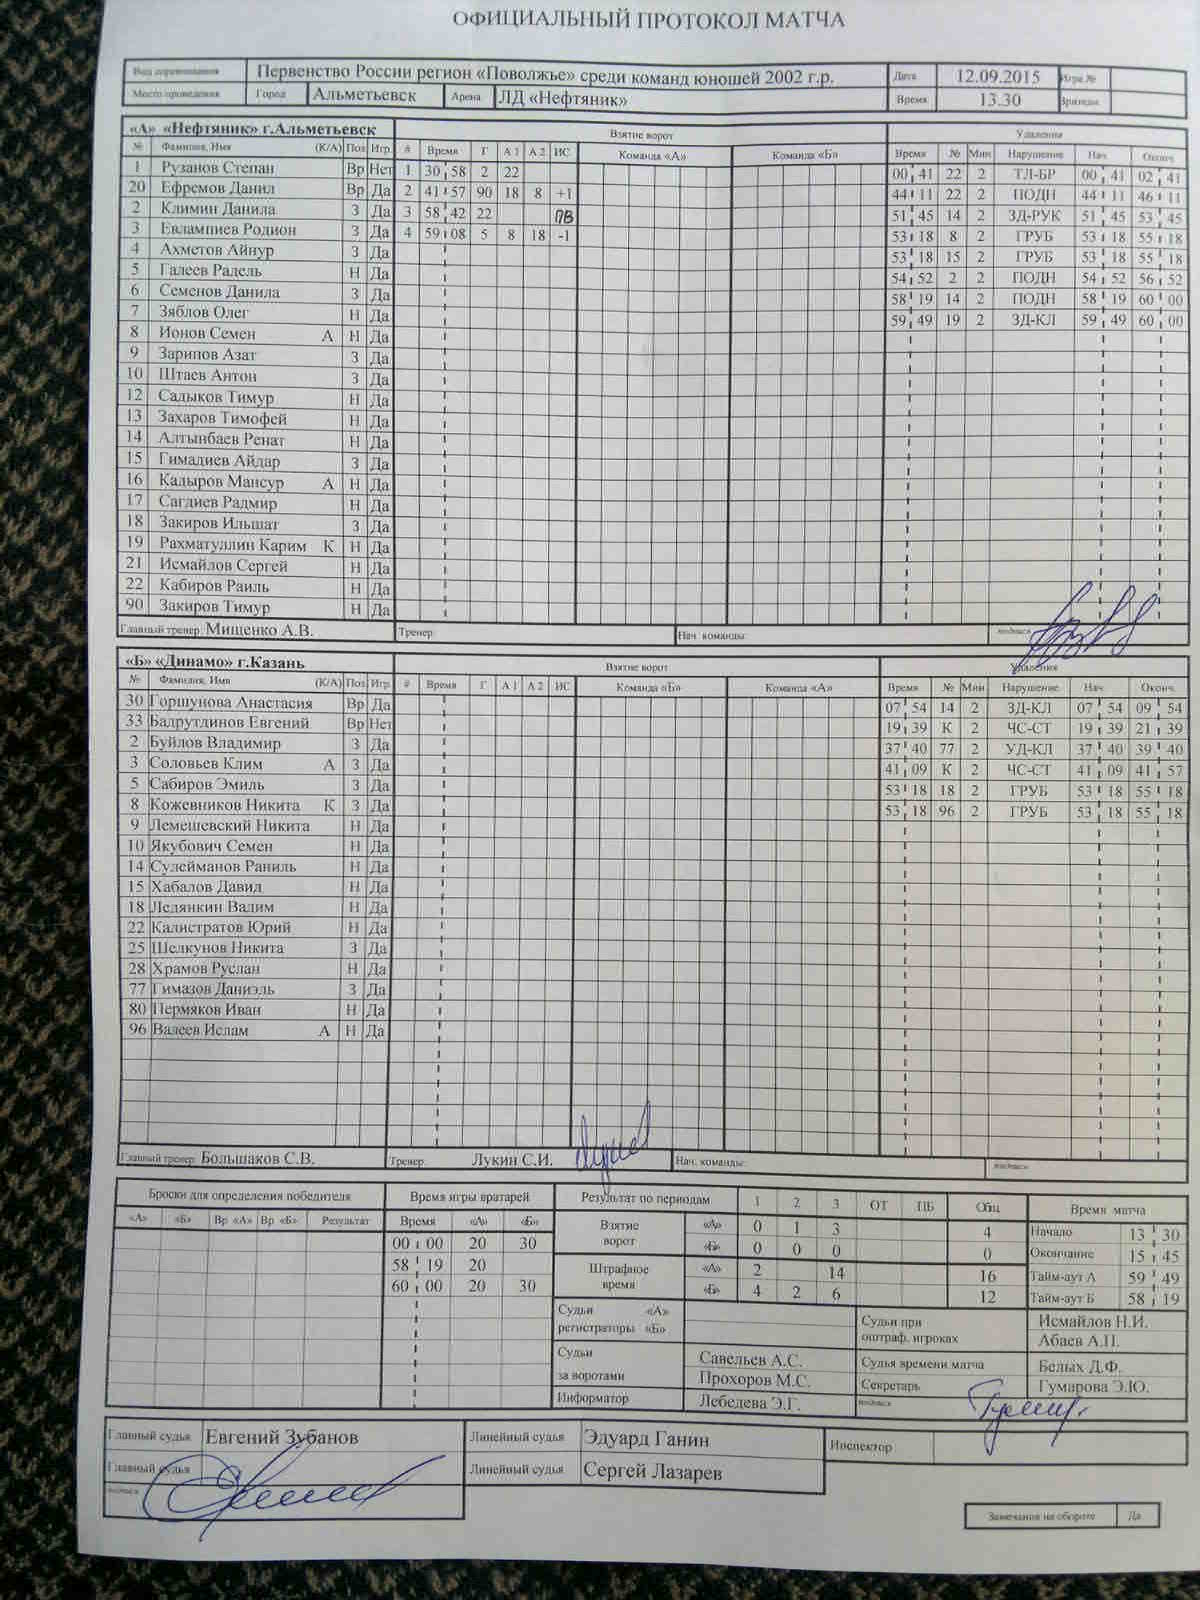 ОФИЦИАЛЬНЫЙ ПРОТОКОЛ МАТЧА
Вид соревнования Первенство России регион «Поволжье» среди команд юношей 2002 г.р. Дата 12.09.2015 Игра №
Место проведения Город Альметьевск Арена ЛД «Нефтяник» Время 13.30 Зрители
«А» «Нефтяник» г.Альметьевск Взятие ворот Удаления
№ Фамилия, Имя (К/А) Поз Игр # Время Г А 1 А 2 ИС Команда «А» Команда «Б» Время № Мин Нарушение Нач. Оконч.
1 Рузанов Степан Вр Нет 1 30 58 2 22 00 41 22 2 ТЛ-БР 00 41 02 41
20 Ефремов Данил Вр Да 2 41 57 90 18 8 +1 44 11 22 2 ПОДН 44 11 46 11
2 Климин Данила З Да 3 58 42 22 ПВ 51 45 14 2 ЗД-РУК 51 45 53 45
3 Евлампиев Родион З Да 4 59 08 5 8 18 -1 53 18 8 2 ГРУБ 53 18 55 18
4 Ахметов Айнур З Да 53 18 15 2 ГРУБ 53 18 55 18
5 Галеев Радель Н Да 54 52 2 2 ПОДН 54 52 56 52
6 Семенов Данила З Да 58 19 14 2 ПОДН 58 19 60 00
7 Зяблов Олег Н Да 59 49 19 2 ЗД-КЛ 59 49 60 00
8 Ионов Семен А Н Да
9 Зарипов Азат З Да
10 Штаев Антон З Да
12 Садыков Тимур Н Да
13 Захаров Тимофей Н Да
14 Алтынбаев Ренат Н Да
15 Гимадиев Айдар З Да
16 Кадыров Мансур А Н Да
17 Сагдиев Радмир Н Да
18 Закиров Ильшат З Да
19 Рахматуллин Карим К Н Да
21 Исмайлов Сергей Н Да
22 Кабиров Раиль Н Да
90 Закиров Тимур Н Да
Главный тренер: Мищенко А.В. Тренер: Нач. команды: подпись
«Б» «Динамо» г.Казань Взятие ворот Удаления
№ Фамилия, Имя (К/А) Поз Игр # Время Г А 1 А 2 ИС Команда «Б» Команда «А» Время № Мин Нарушение Нач. Оконч.
30 Горшунова Анастасия Вр Да 07 54 14 2 ЗД-КЛ 07 54 09 54
33 Бадрутдинов Евгений Вр Нет 19 39 К 2 ЧС-СТ 19 39 21 39
2 Буйлов Владимир З Да 37 40 77 2 УД-КЛ 37 40 39 40
3 Соловьев Клим А З Да 41 09 К 2 ЧС-СТ 41 09 41 57
5 Сабиров Эмиль З Да 53 18 18 2 ГРУБ 53 18 55 18
8 Кожевников Никита К З Да 53 18 96 2 ГРУБ 53 18 55 18
9 Лемешевский Никита Н Да
10 Якубович Семен Н Да
14 Сулейманов Раниль Н Да
15 Хабалов Давид Н Да
18 Ледянкин Вадим Н Да
22 Калистратов Юрий Н Да
25 Шелкунов Никита З Да
28 Храмов Руслан Н Да
77 Гимазов Даниэль З Да
80 Пермяков Иван Н Да
96 Валеев Ислам А Н Да
Главный тренер: Большаков С.В. Тренер: Лукин С.И. Нач. команды: подпись
Броски для определения победителя Время игры вратарей Результат по периодам 1 2 3 ОТ ПБ Общ Время матча
«А» «Б» Вр «А» Вр «Б» Результат Время «А» «Б» Взятие ворот «А» 0 1 3 4 Начало 13 30
00 00 20 30 «Б» 0 0 0 0 Окончание 15 45
58 19 20 Штрафное время «А» 2 14 16 Тайм-аут А 59 49
60 00 20 30 «Б» 4 2 6 12 Тайм-аут Б 58 19
Судьи регистраторы «А» «Б» Судьи при оштраф. игроках Исмайлов Н.И.
Абаев А.П.
Судьи за воротами Савельев А.С. Судья времени матча Белых Д.Ф.
Прохоров М.С. Секретарь Гумарова Э.Ю.
Информатор Лебедева Э.Г. подпись
Главный судья Евгений Зубанов Линейный судья Эдуард Ганин Инспектор
Главный судья Линейный судья Сергей Лазарев
подписи
Замечания на обороте Да